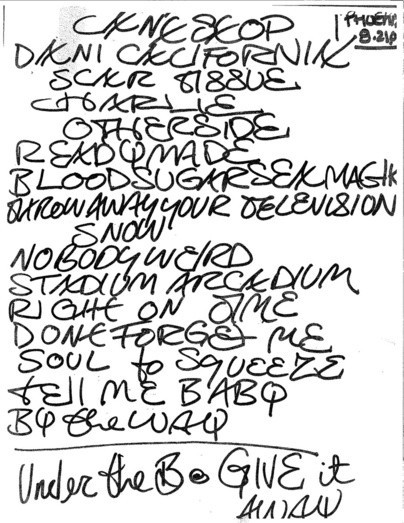 CANT STOP
PHOENIX
DANI CALIFORNIA
SCAR TISSUE
CHARLIE
OTHERSIDE
READYMADE
BLOODSUGARSEXMAGIK
THROW AWAY YOUR TELEVISION
SNOW
NOBODY WEIRD
STADIUM ARCADIUM
RIGHT ON TIME
DONT FORGET ME
SOUL to SQUEEZE
tEll ME BABY
BY the WAY
Under the B • GIVE it
AWAY